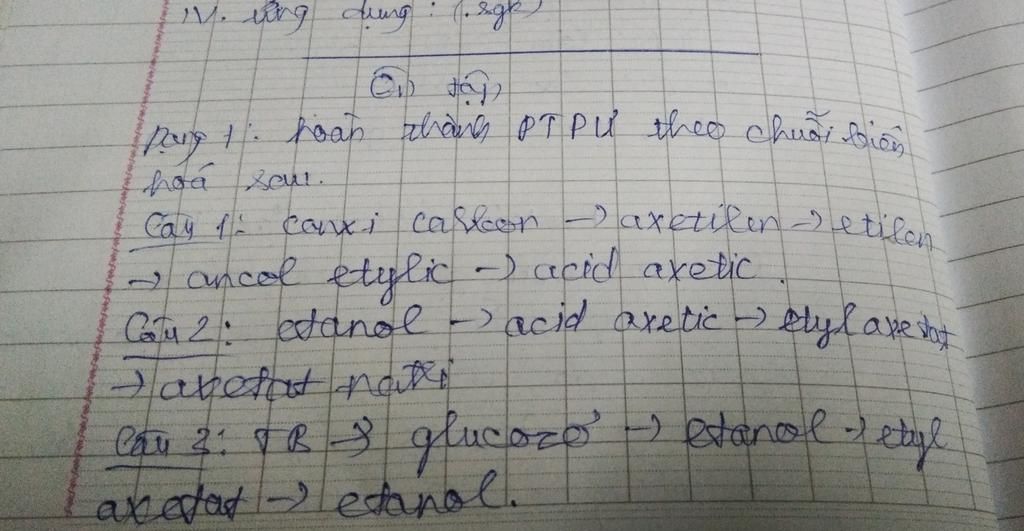 IV. ứng dụng: (.sgk)
Ôn tập
Dạng 1: hoàn thành PTPƯ theo chuỗi biến
hoá sau.
Câu 1: canxi cacbon → axetilen → etilen
→ ancol etylic → acid axetic.
Câu 2: etanol → acid axetic → etyl axetat
→ axetat natri
Câu 3: TB → glucozơ → etanol → etyl
axetat → etanol.